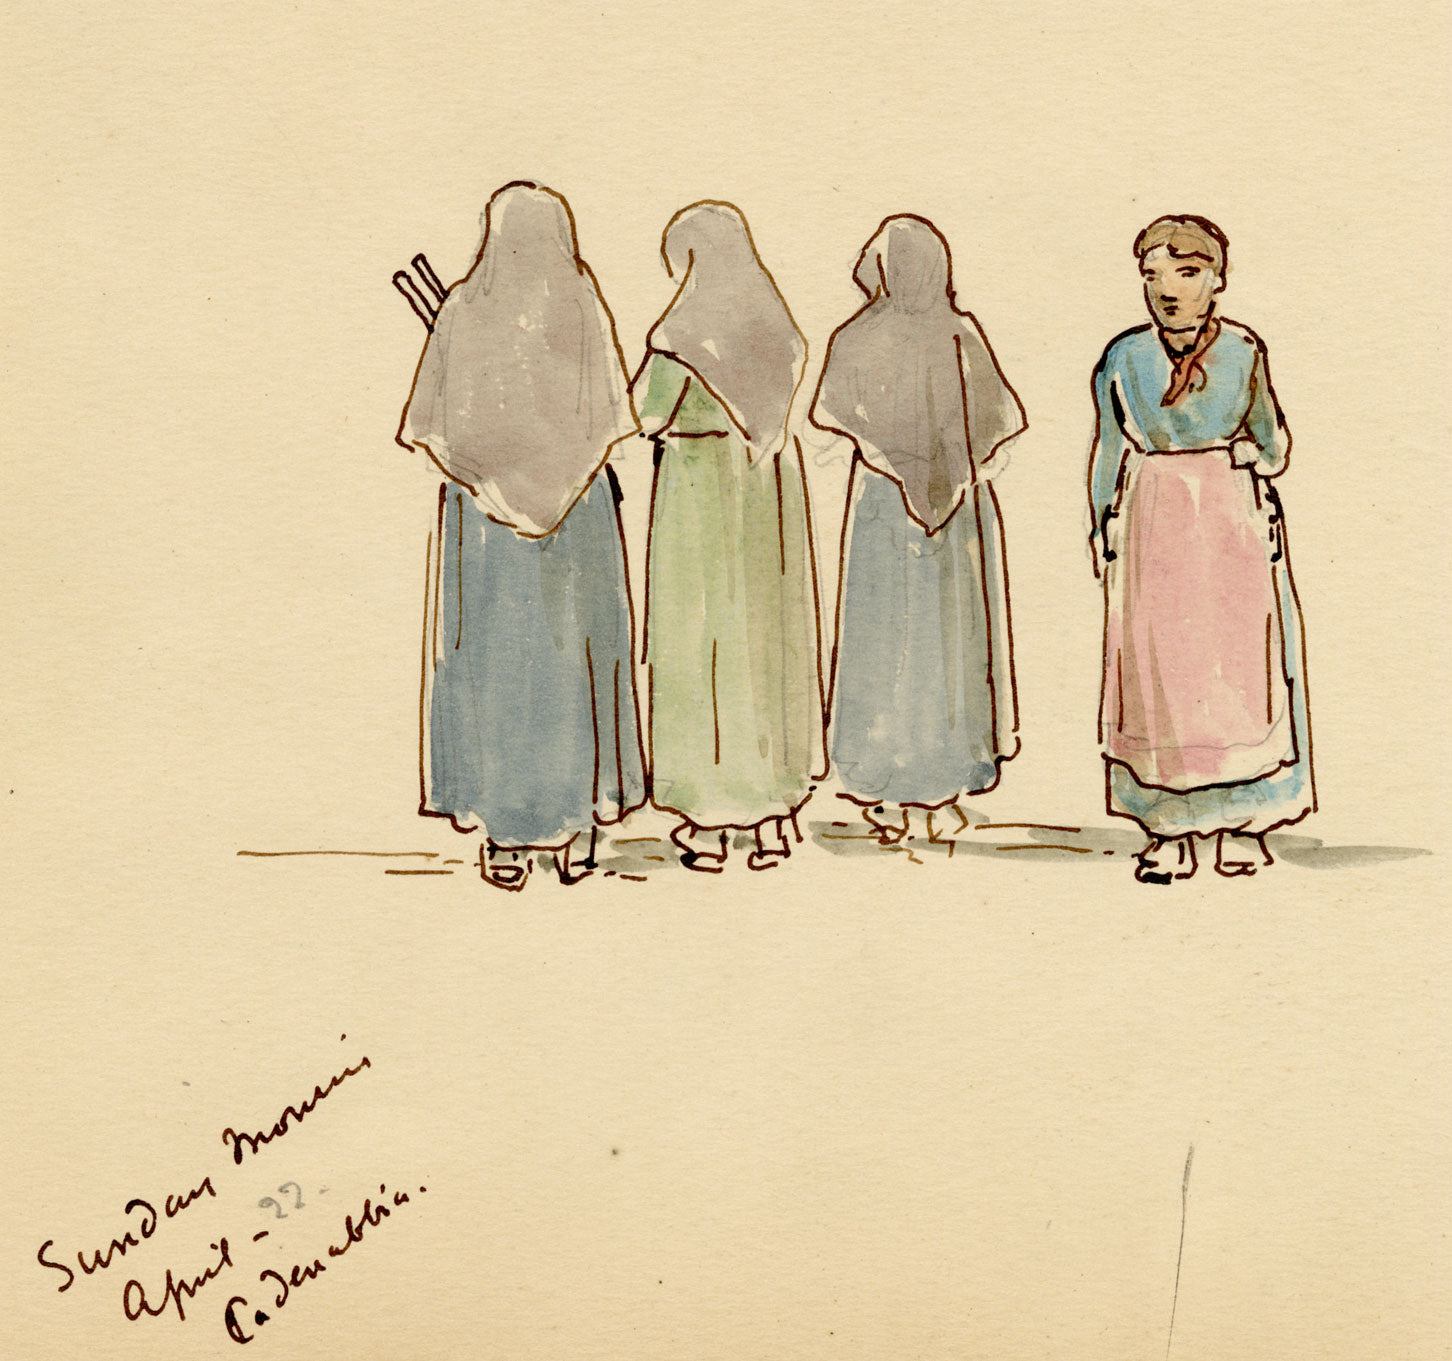 Sunday Morning
April - 22 -
Cadenabbia.